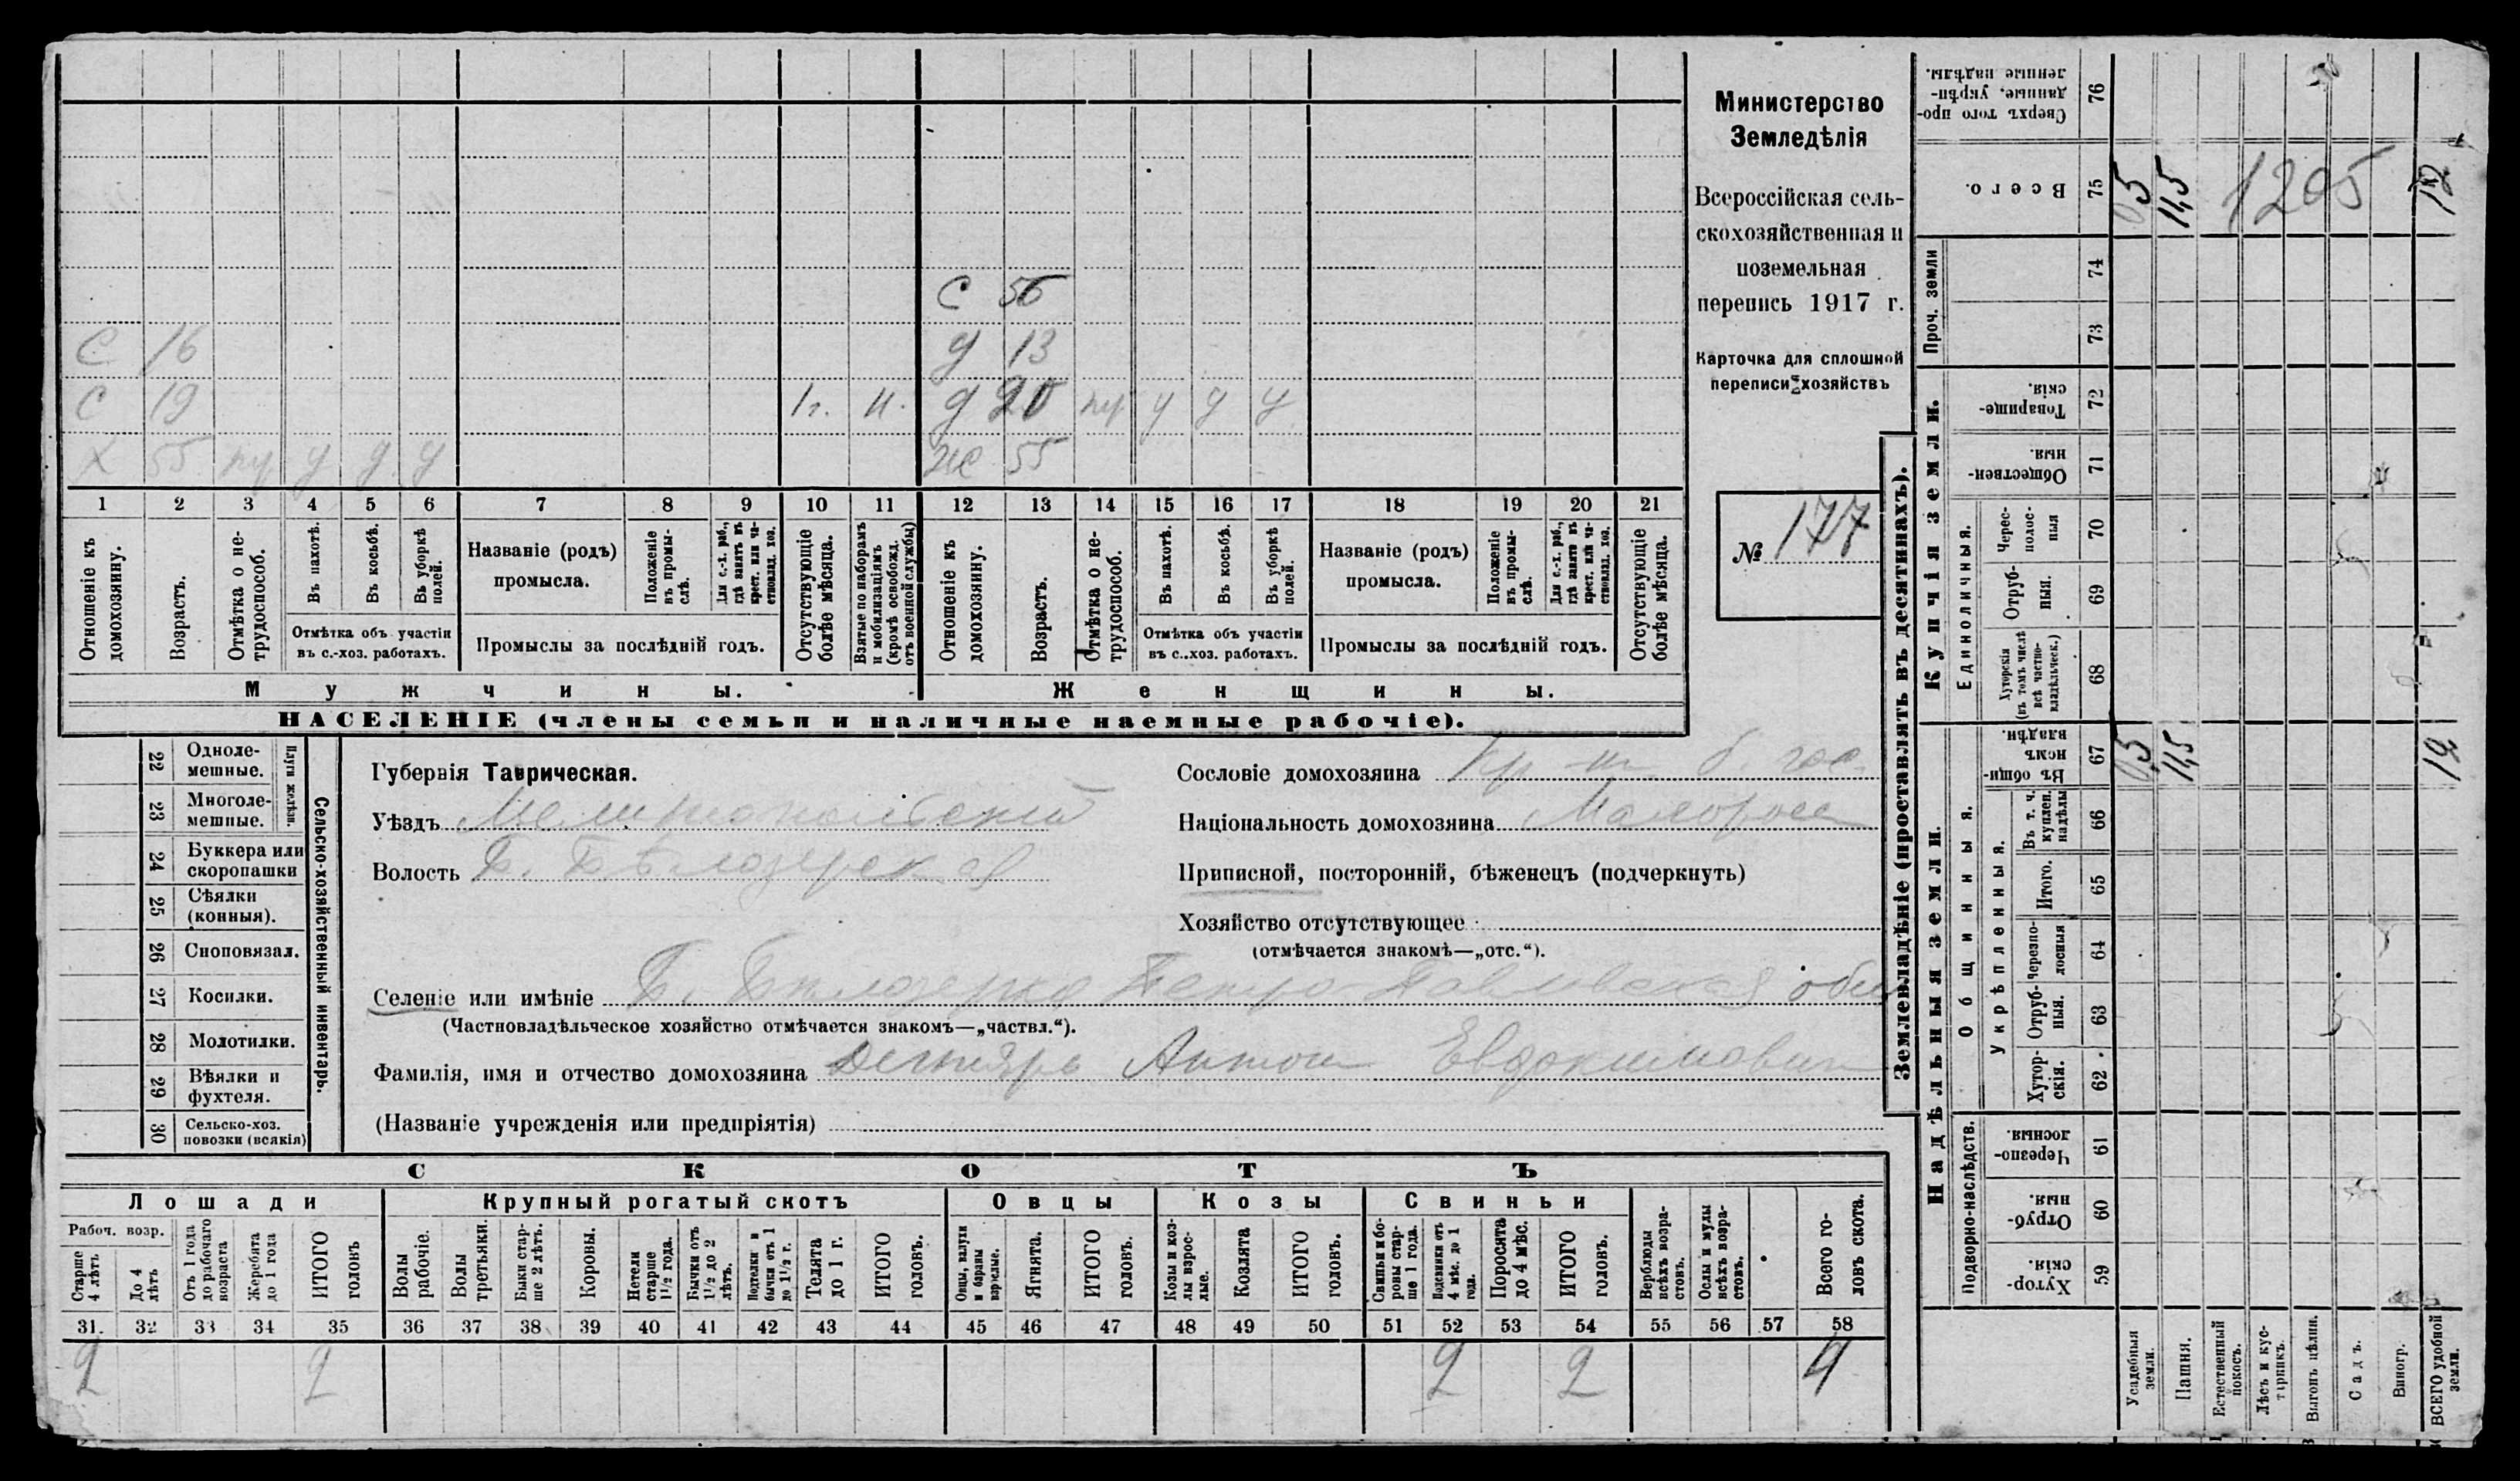 Министерство
Земледѣлія
Всероссійская сель-
скохозяйственная и
поземельная
перепись 1917 г.
Карточка для сплошной
переписи хозяйствъ
№ 177
С 56
С 16
д 13
С 19
1 г. н. д 20 у д у
Х 55 у д у
же 55
1 2 3 4 5 6 7 8 9 10 11 12 13 14 15 16 17 18 19 20 21
Отношеніе къ домохозяину.
Возрастъ.
Отмѣтка о не-трудоспособ.
Въ пахотѣ.
Въ косьбѣ.
Въ уборкѣ полей.
Отмѣтка объ участіи
въ с.-хоз. работахъ.
Названіе (родъ)
промысла.
Положеніе въ промы-слѣ.
Для с.-х. раб., гдѣ занятъ въ крест. или ча-стновлад. хоз.
Промыслы за послѣдній годъ.
Отсутствующіе болѣе мѣсяца.
Взятые по наборамъ и мобилизаціямъ (кромѣ освобожд. отъ военной службы)
Отношеніе къ домохозяину.
Возрастъ.
Отмѣтка о не-трудоспособ.
Въ пахотѣ.
Въ косьбѣ.
Въ уборкѣ полей.
Отмѣтка объ участіи
въ с..хоз. работахъ.
Названіе (родъ)
промысла.
Положеніе въ промы-слѣ.
Для с.-х. раб., гдѣ занято въ крест. или ча-стновлад. хоз.
Промыслы за послѣдній годъ.
Отсутствующіе болѣе мѣсяца.
Мужчины.
Женщины.
НАСЕЛЕНІЕ (члены семьи и наличные наемные рабочіе).
Сельско-хозяйственный инвентарь.
Плуги желѣзн.
22 Одноле-мешные.
23 Многоле-мешные.
24 Буккера или скоропашки
25 Сѣялки (конныя).
26 Сноповязал.
27 Косилки.
28 Молотилки.
29 Вѣялки и фухтеля.
30 Сельско-хоз. повозки (всякія)
Губернія Таврическая.
Уѣздъ Мелитопольскій
Волость Б. Бѣлозерская
Сословіе домохозяина кр-нъ б. гос.
Національность домохозяина Малороссъ
Приписной, посторонній, бѣженецъ (подчеркнуть)
Хозяйство отсутствующее
(отмѣчается знакомъ—„отс.“).
Селеніе или имѣніе Б. Бѣлозерка Петро Павловская общ
(Частновладѣльческое хозяйство отмѣчается знакомъ—„частвл.“).
Фамилія, имя и отчество домохозяина Дегтярь Антон Евдокимович
(Названіе учрежденія или предпріятія)
СКОТЪ
Лошади
Крупный рогатый скотъ
Овцы
Козы
Свиньи
Рабоч. возр.
Старше 4 лѣтъ
До 4 лѣтъ
Отъ 1 года до рабочаго возраста
Жеребята до 1 года
ИТОГО головъ
Волы рабочіе.
Волы третьяки.
Быки стар-ше 2 лѣтъ.
Коровы.
Нетели старше 1½ года.
Бычки отъ 1½ до 2 лѣтъ.
Подтелки и бычки отъ 1 до 1½ г.
Телята до 1 г.
ИТОГО головъ.
Овцы, валухи и бараны взрослые.
Ягнята.
ИТОГО головъ.
Козы и коз-лы взрос-лые.
Козлята
ИТОГО головъ.
Свиньи и бо-ровы стар-ше 1 года.
Подсвинки отъ 4 мѣс. до 1 года.
Поросята до 4 мѣс.
ИТОГО головъ.
Верблюды всѣхъ возра-стовъ.
Ослы и мулы всѣхъ возра-стовъ.
Всего го-ловъ скота.
31. 32 33 34 35 36 37 38 39 40 41 42 43 44 45 46 47 48 49 50 51 52 53 54 55 56 57 58
2 2 2 2 4
Землевладѣніе (проставлять въ десятинахъ).
Надѣльныя земли.
Купчія земли.
Проч. земли
Подворно-наслѣдств.
Общинныя.
Укрѣпленныя.
Единоличныя.
76 Сверхъ того про-данные, укрѣп-ленные надѣлы.
75 Всего.
74
73
72 Товарище-скія.
71 Обществен-ныя.
70 Черес-полос-ныя
69 Отруб-ныя.
68 Хуторскія (въ томъ числѣ всѣ частно-владѣльческ.)
67 Въ общин-номъ владѣн.
66 Въ т. ч. куплен. надѣлы
65 Итого.
64 Черезпо-лосныя
63 Отруб-ныя.
62 Хутор-скія.
61 Черезпо-лосныя.
60 Отруб-ныя.
59 Хутор-скія.
Усадебныя земли.
Пашня.
Естественный покосъ.
Лѣсъ и кус-тарникъ.
Выгонъ цѣлин.
Садъ.
Виногр.
ВСЕГО удобной земли.
0,5 11,5 1205 12
0,5 11,5 12